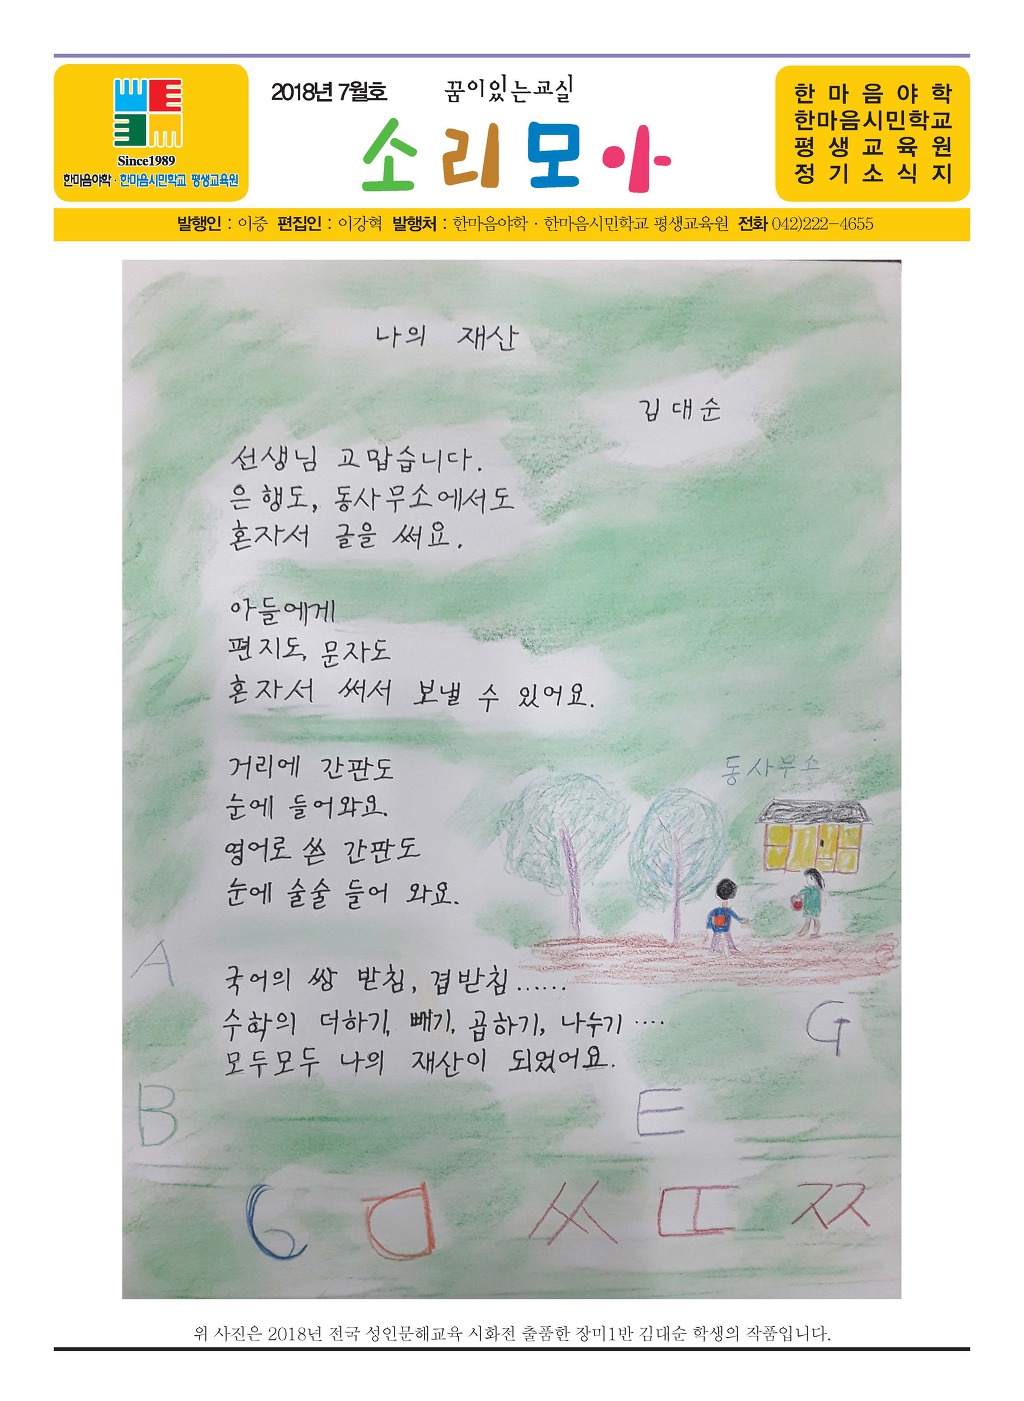 WE
Since1989
한마음야학·한마음시민학교 평생교육원
2018년 7월호 꿈이있는교실
소리모아
한마음야학
한마음시민학교
평생교육원
정기소식지
발행인 : 이중 편집인 : 이강혁 발행처 : 한마음야학·한마음시민학교 평생교육원 전화 042)222-4655
나의 재산
김대순
선생님 고맙습니다.
은행도, 동사무소에서도
혼자서 글을 써요.
아들에게
편지도, 문자도
혼자서 써서 보낼 수 있어요.
거리에 간판도
눈에 들어와요.
영어로 쓴 간판도
눈에 술술 들어 와요.
동사무소
국어의 쌍 받침, 겹받침......
수학의 더하기, 빼기, 곱하기, 나누기....
모두모두 나의 재산이 되었어요.
A
G
B
E
ㅆ ㄸ ㅉ
위 사진은 2018년 전국 성인문해교육 시화전 출품한 장미1반 김대순 학생의 작품입니다.